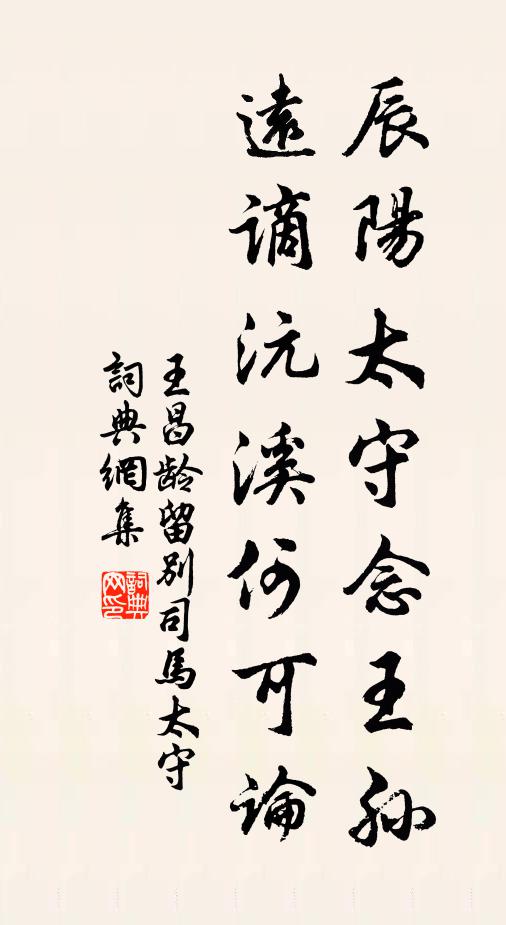 辰陽太守念王孫
遠謫沅溪何可論
王昌龄留别司馬太守
詞典網集
詞典
网印